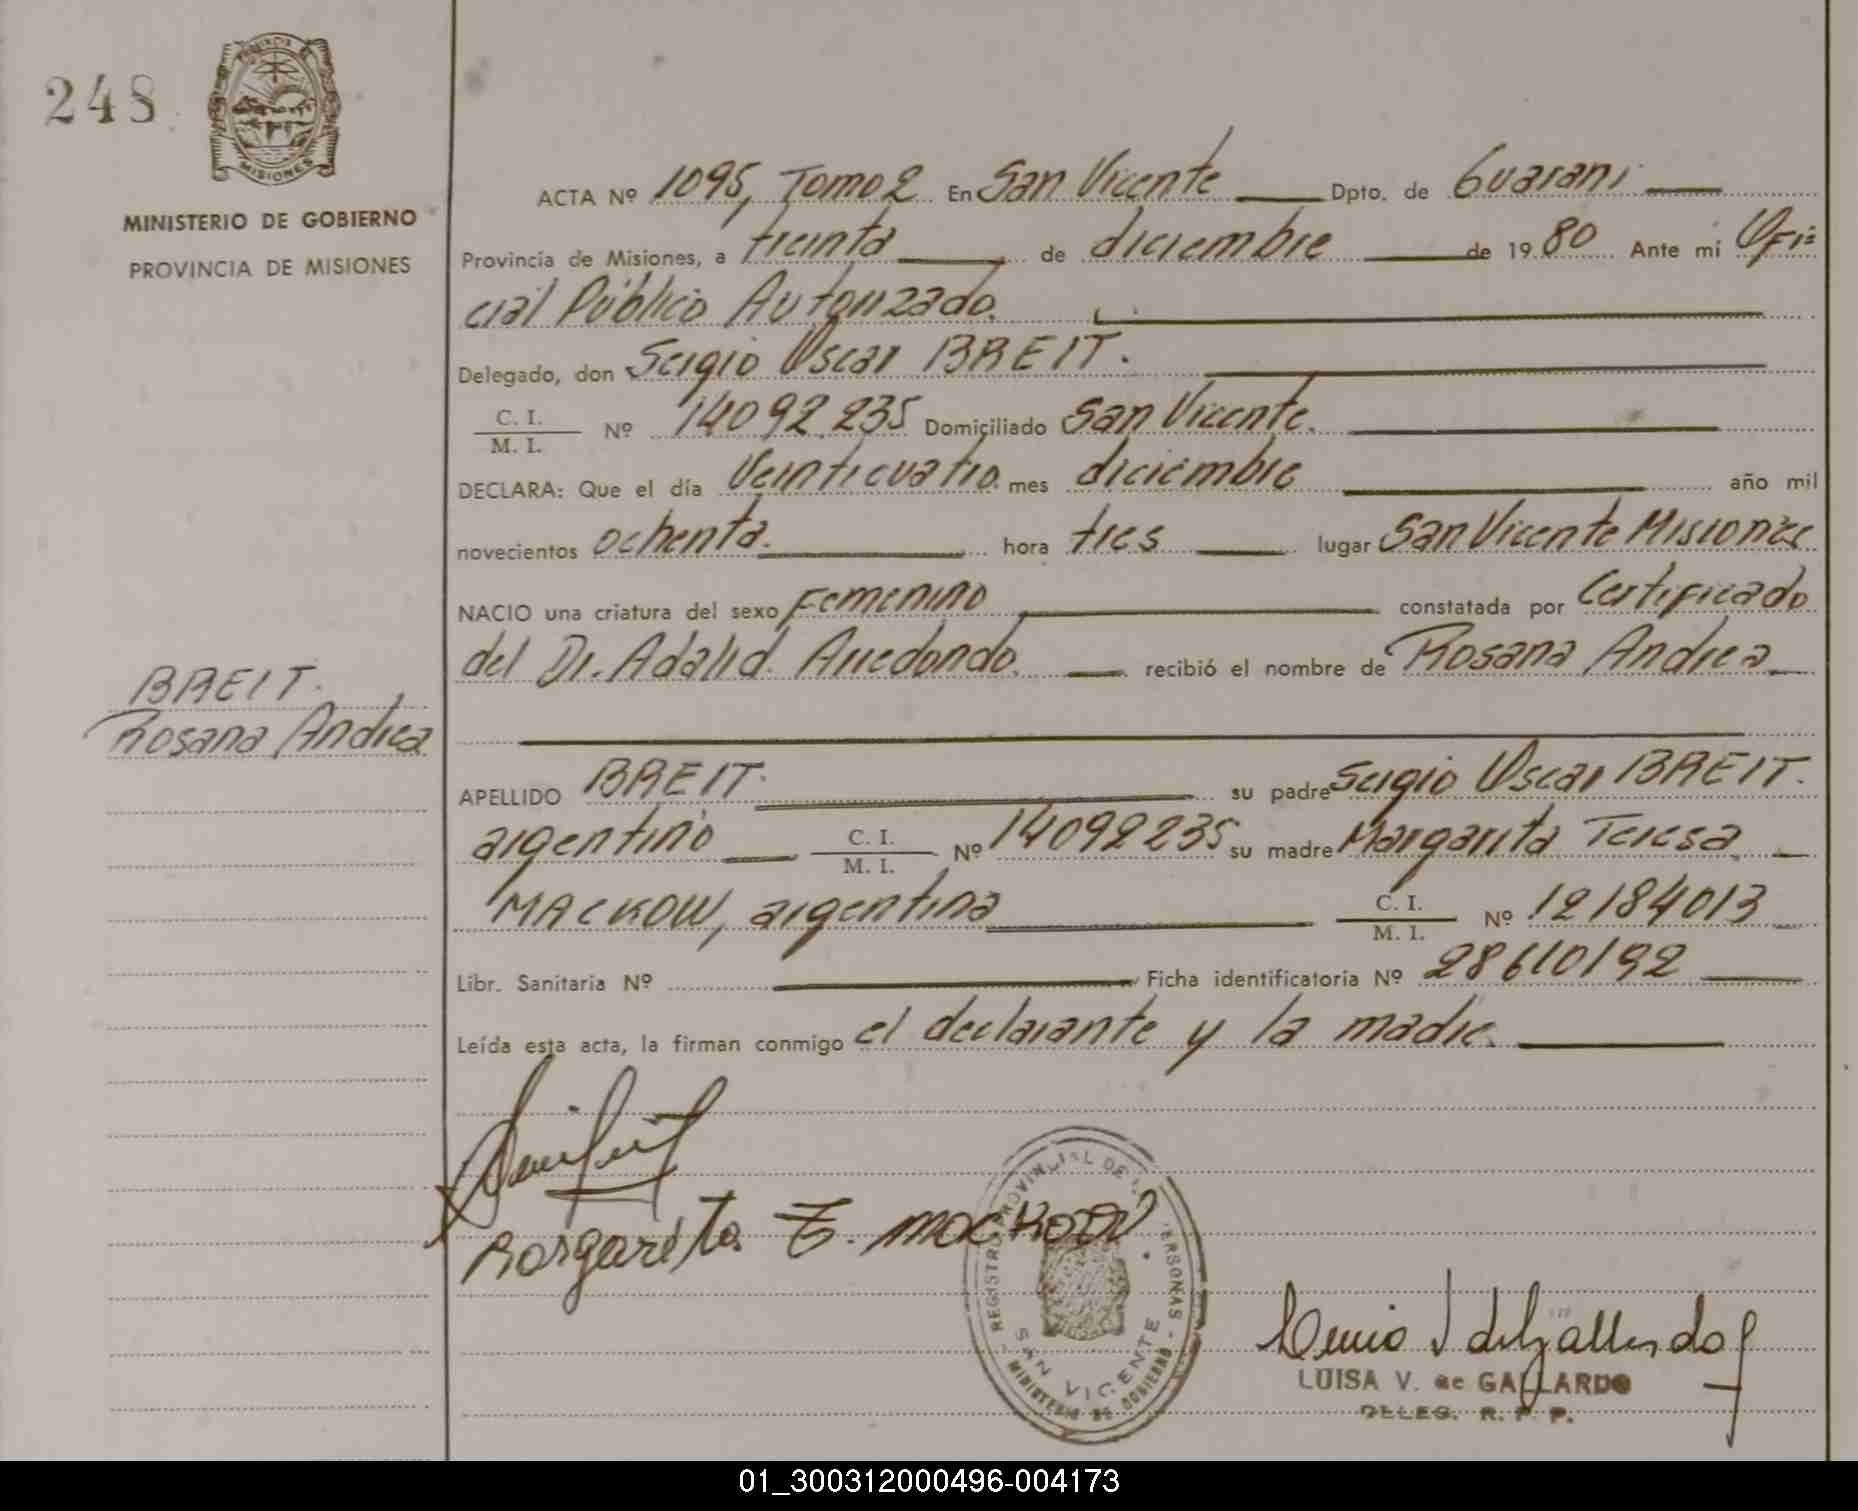 248
PROVINCIA DE
MISIONES
MINISTERIO DE GOBIERNO
PROVINCIA DE MISIONES
ACTA Nº 1095, Tomo 2 En San Vicente Dpto. de Guarani
Provincia de Misiones, a treinta de diciembre de 1980 Ante mí Ofi=
cial Público Autorizado.
Delegado, don Sergio Oscar BREIT.
C. I.
M. I. Nº 14092.235 Domiciliado San Vicente.
DECLARA: Que el día Veinticuatro mes diciembre año mil
novecientos ochenta. hora tres lugar San Vicente Misiones
NACIO una criatura del sexo Femenino constatada por Certificado
del Dr. Adalid Arredondo. recibió el nombre de Rosana Andrea
BREIT.
Rosana Andrea
APELLIDO BREIT. su padre Sergio Oscar BREIT.
argentino C. I.
M. I. Nº 14092235 su madre Margarita Teresa
MACKOW, argentina C. I.
M. I. Nº 12184013
Libr. Sanitaria Nº Ficha identificatoria Nº 28610192
Leída esta acta, la firman conmigo el declarante y la madre.
Margarita T. Mackow
REGISTRO PROVINCIAL DE PERSONAS - MINISTERIO DE GOBIERNO
SAN VICENTE
LUISA V. de GALLARDO
DELEG. R. P. P.
01_300312000496-004173